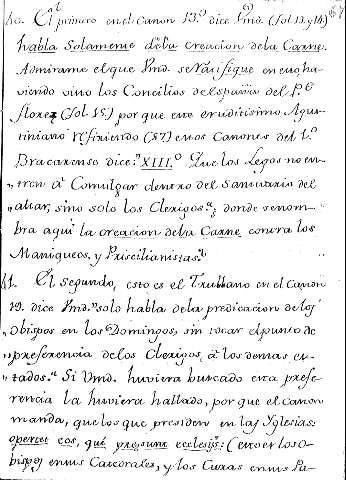 40. El primero en el Canon 13.º dice Vmd. (fol. 13. y 14)
habla Solamente de la creacion de la Carne.
Admirame el que Vmd. se ratifique en esso ha-
viendo visto los Concilios de España del P.e
florez (fol. 15.) por que este eruditisimo Agus-
tiniano refiriendo (87) esos Canones del 1.º
Bracarense dice: "XIII.º Que los Legos no en-
"tren á Comulgar dentro del Santuario del
"altar, sino solo los Clerigos": donde se nom-
bra aqui la creacion de la Carne contra los
Maniqueos, y Priscilianistas?
41. El segundo, esto es el Trullano en el Canon
19. dice Vmd. "solo habla de la predicacion de los
Obispos en los Domingos, sin tocar el punto de
"preferencia de los Clerigos á los demas es-
"tados." Si Vmd. huviera buscado esta prefe-
rencia la huviera hallado, por que el canon
manda, que los que presiden en las Yglesias:
oportet eos, qui præsunt ecclesijs: (esto es los O-
bispos en sus Catedrales, y los Curas en sus Pa-